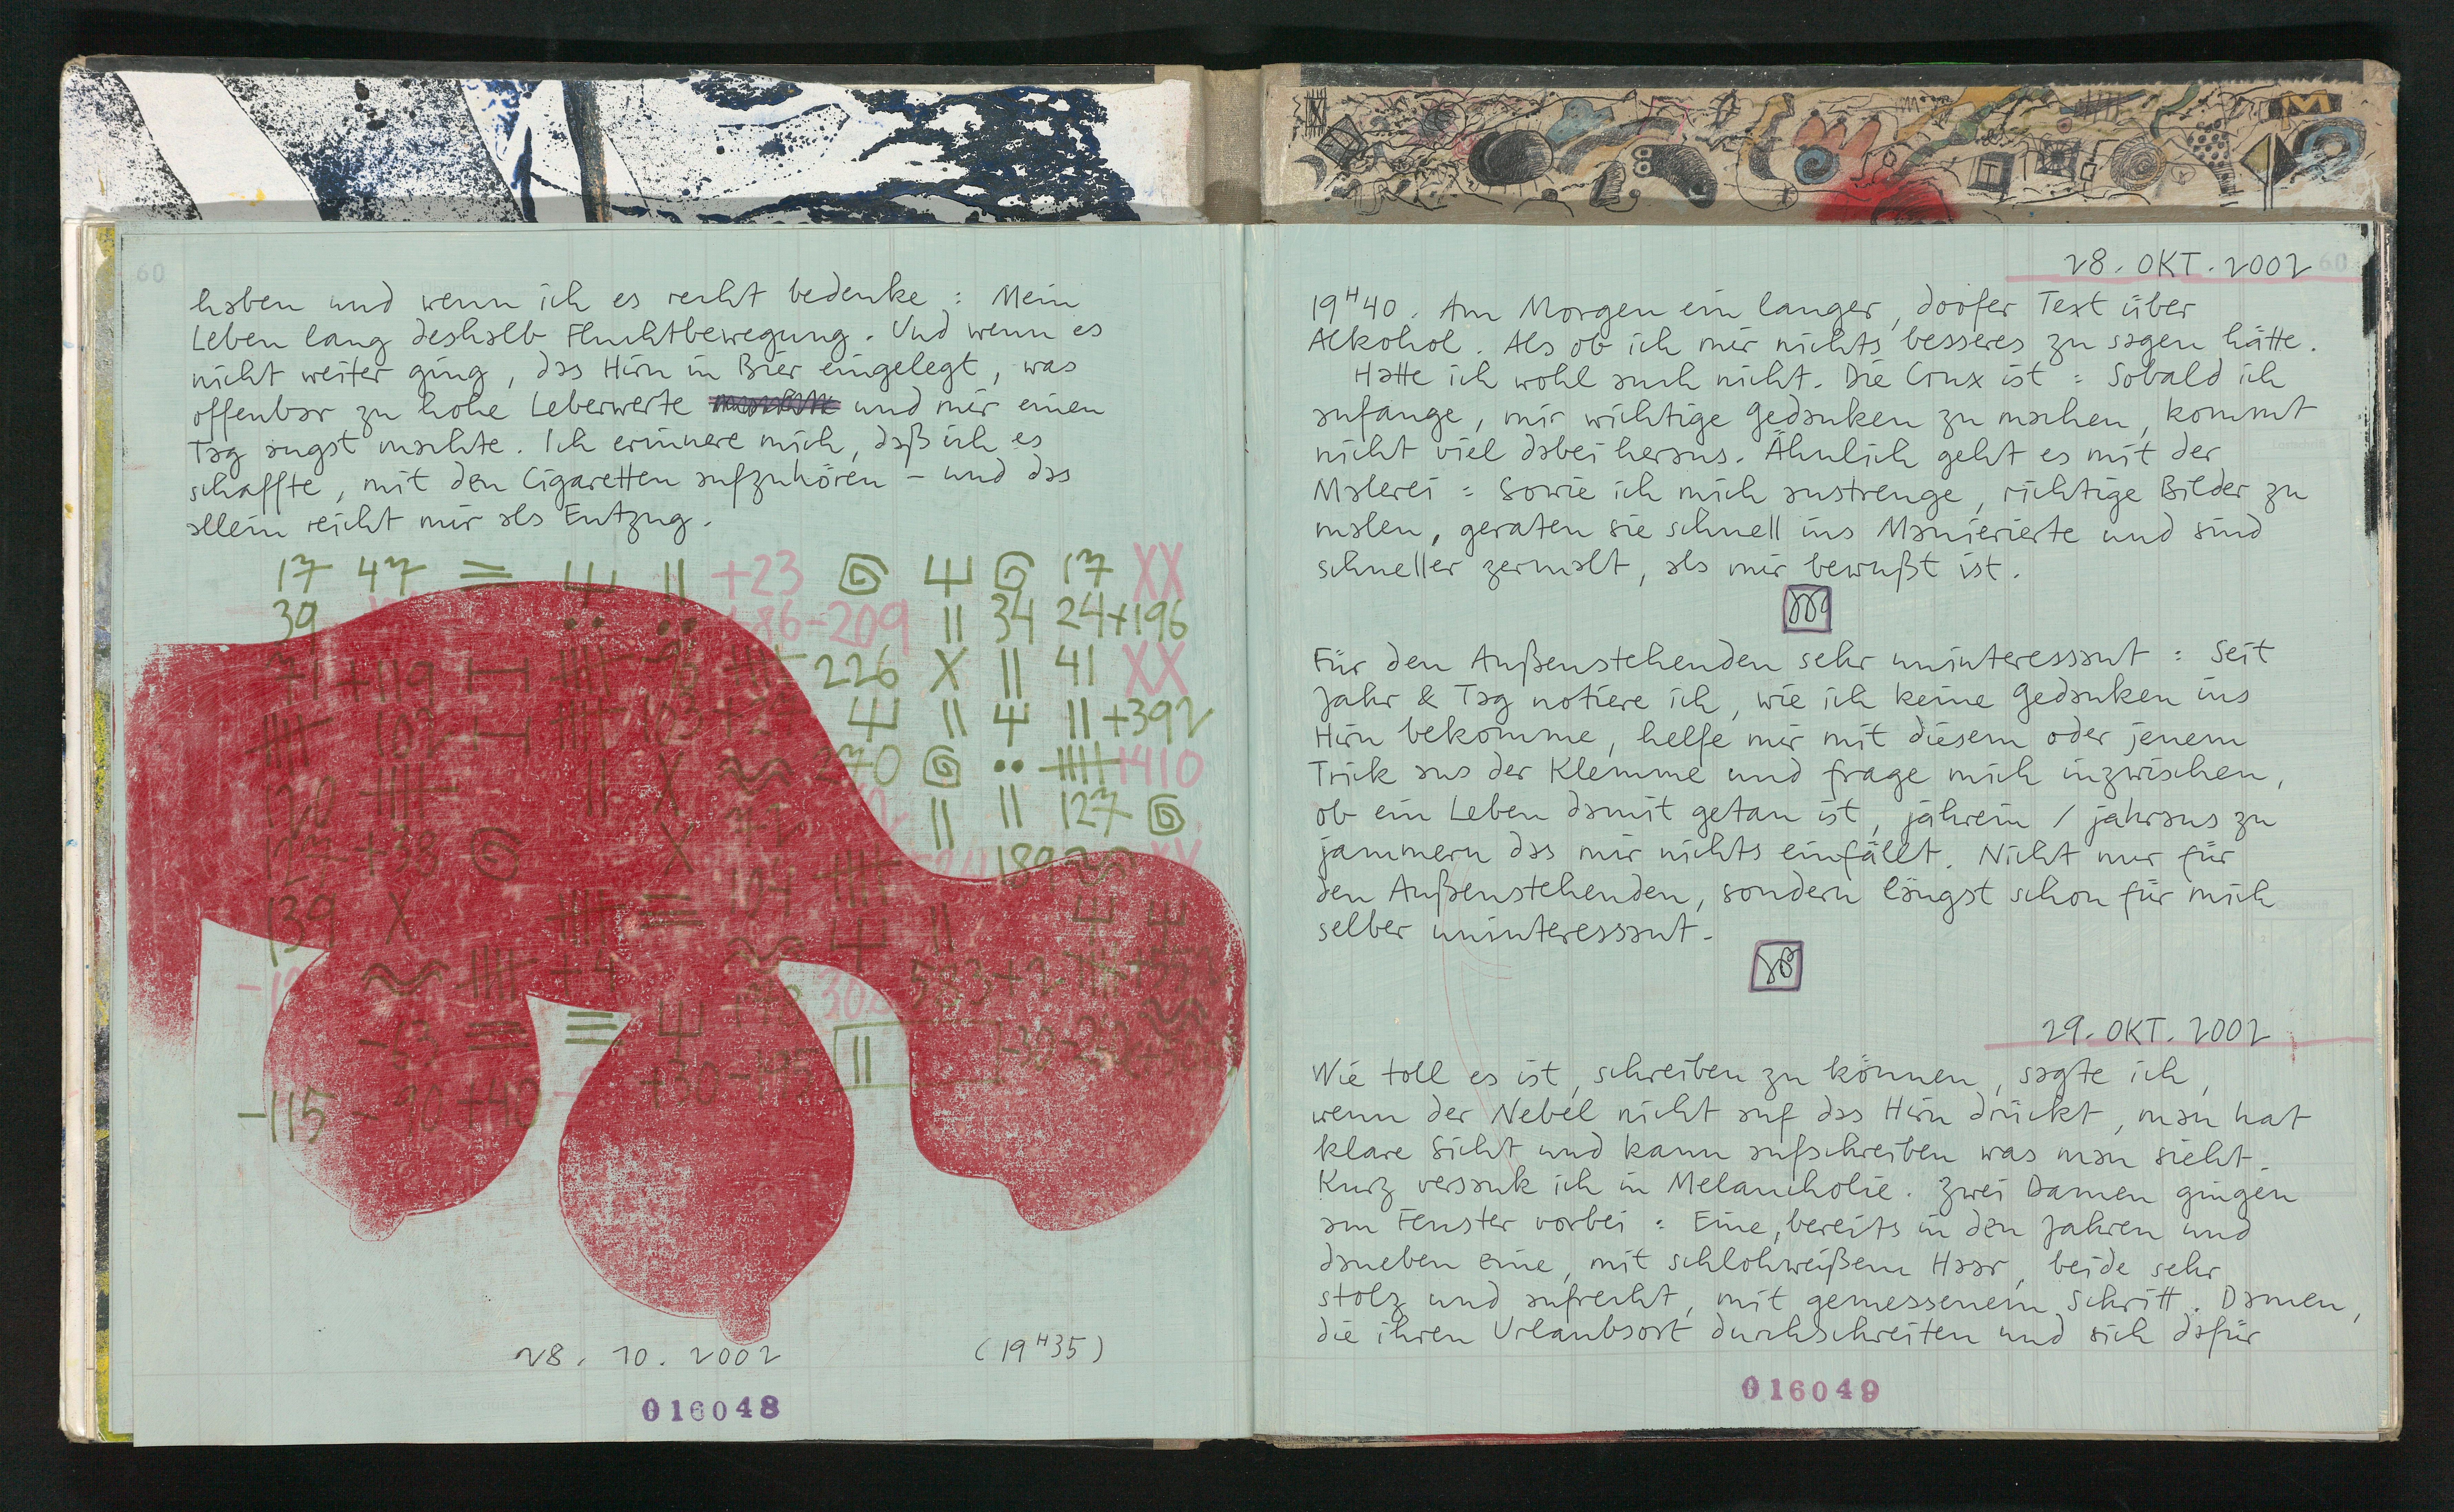 60
haben und wenn ich es recht bedenke : Mein
Leben lang deshalb Fluchtbewegung. Und wenn es
nicht weiter ging, das Hirn in Bier eingelegt, was
offenbar zu hohe Leberwerte und mir einen
Tag angst machte. Ich erinnere mich, daß ich es
schaffte, mit den Cigaretten aufzuhören – und das
allein reicht mir als Entzug.
17 47 = +23 17 XX
39 86-209 || 34 24+196
71 +119 96 226 X || 41 XX
102 103 +2 || || +392
120 || X 270 1410
|| || 127
+38 X 189
139 X 104 ||
+4
-63 ||
-115 - 90 +40 +30
28. 10. 2002 (19H35)
016048
28. OKT. 2002 60
19H40. Am Morgen ein langer, doofer Text über
Alkohol. Als ob ich mir nichts besseres zu sagen hätte.
Hatte ich wohl auch nicht. Die Crux ist : Sobald ich
anfange, mir wichtige Gedanken zu machen, kommt
nicht viel dabei heraus. Ähnlich geht es mit der
Malerei : Sowie ich mich anstrenge, richtige Bilder zu
malen, geraten sie schnell ins Manierierte und sind
schneller zermalt, als mir bewußt ist.
Für den Außenstehenden sehr uninteressant : Seit
Jahr & Tag notiere ich, wie ich keine Gedanken ins
Hirn bekomme, helfe mir mit diesem oder jenem
Trick aus der Klemme und frage mich inzwischen,
ob ein Leben damit getan ist, jahrein / jahraus zu
jammern das mir nichts einfällt. Nicht nur für
den Außenstehenden, sondern längst schon für mich
selber uninteressant.
29. OKT. 2002
Wie toll es ist, schreiben zu können, sagte ich,
wenn der Nebel nicht auf das Hirn drückt, man hat
klare Sicht und kann aufschreiben was man sieht.
Kurz versank ich in Melancholie. Zwei Damen gingen
am Fenster vorbei : Eine, bereits in den Jahren und
daneben eine, mit schlohweißem Haar, beide sehr
stolz und aufrecht, mit gemessenem Schritt. Damen,
die ihren Urlaubsort durchschreiten und sich dafür
016049